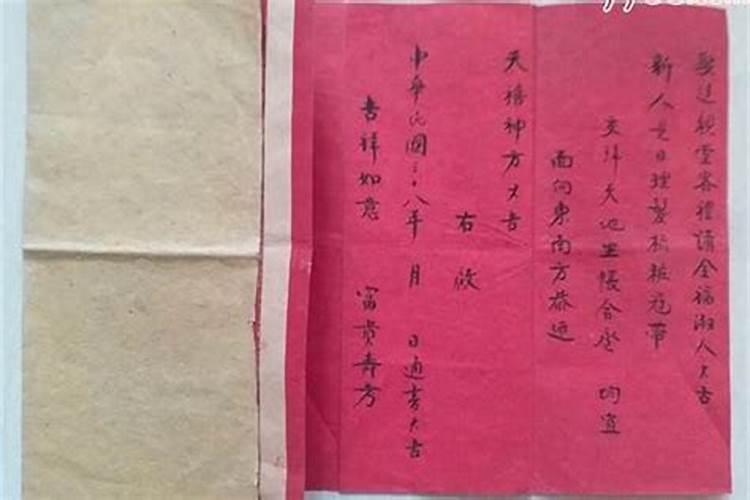 娶送親堂客禮請全福淑人大吉
新人是日理髮梳粧冠帶
交拜天地坐帳合卺 均宜
面向東南方恭迎
天德神方大吉
右啟
中華民國三十八年 月 日通書大吉
吉祥如意 富貴壽方